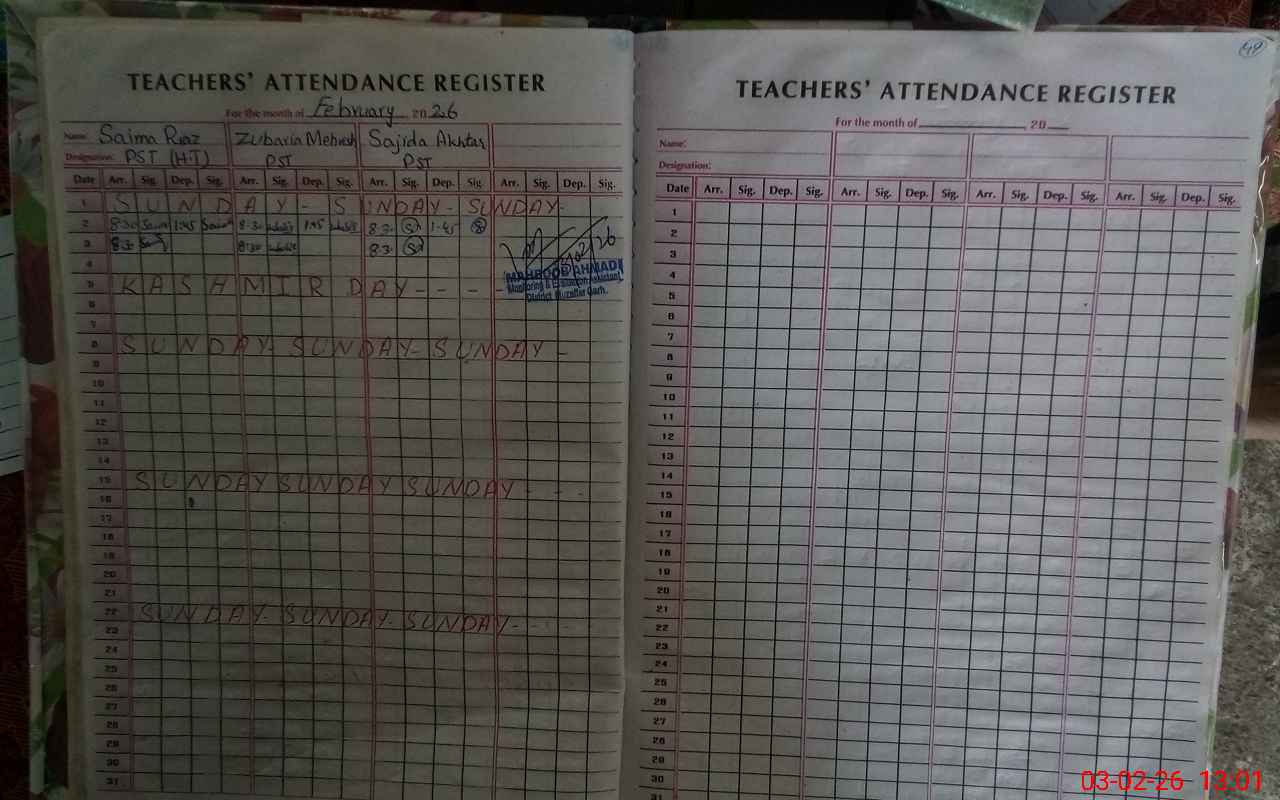 TEACHERS' ATTENDANCE REGISTER
For the month of February 2026
Name: Saima Riaz Zubaria Mehwish Sajida Akhtar
Designation: PST (HT) PST PST
Date Arr. Sig. Dep. Sig. Arr. Sig. Dep. Sig. Arr. Sig. Dep. Sig. Arr. Sig. Dep. Sig.
1 SUNDAY - SUNDAY - SUNDAY -
2 8:30 Saima 1:45 Saima 8:30 1:45 8:30 1:45
3 8:30 8:30 8:30
4
5 KASHMIR DAY - - - -
6
7
8 SUNDAY - SUNDAY - SUNDAY -
9
10
11
12
13
14
15 SUNDAY SUNDAY SUNDAY - - -
16
17
18
19
20
21
22 SUNDAY - SUNDAY - SUNDAY - - -
23
24
25
26
27
28
29
30
31
MAHMOOD AHMAD
Monitoring & Evaluation Assistant
District Muzaffar Garh.
49
TEACHERS' ATTENDANCE REGISTER
For the month of , 20
Name:
Designation:
Date Arr. Sig. Dep. Sig. Arr. Sig. Dep. Sig. Arr. Sig. Dep. Sig. Arr. Sig. Dep. Sig.
1
2
3
4
5
6
7
8
9
10
11
12
13
14
15
16
17
18
19
20
21
22
23
24
25
26
27
28
29
30
31
03-02-26 13:01